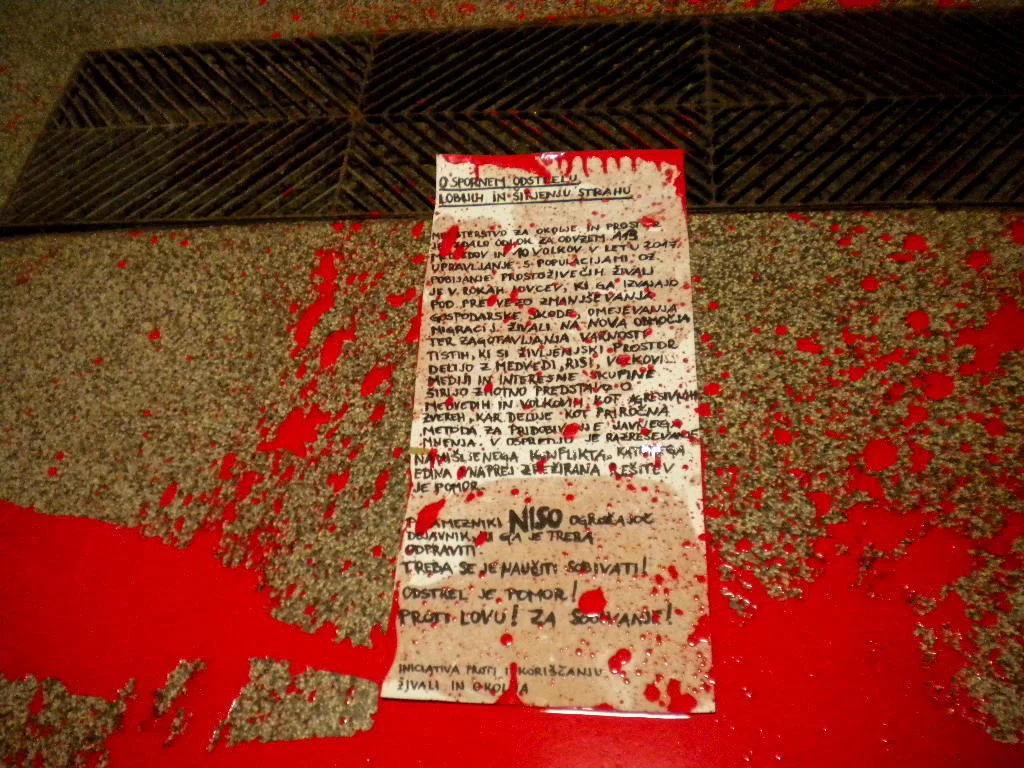 O SPORNEM ODSTRELU
LOBNIH IN ŠIRJENJU STRAHU
MINISTERSTVO ZA OKOLJE IN PROSTOR
JE IZDALO ODLOK ZA ODVZEM 113
MEDVEDOV IN 10 VOLKOV V LETU 2017.
UPRAVLJANJE S POPULACIJAMI OZ.
POBIJANJE PROSTOŽIVEČIH ŽIVALI
JE V ROKAH LOVCEV, KI GA IZVAJAJO
POD PRETVEZO ZMANJŠEVANJA
GOSPODARSKE ŠKODE, OMEJEVANJA
MIGRACIJ ŽIVALI NA NOVA OBMOČJA
TER ZAGOTAVLJANJA VARNOSTI
TISTIH, KI SI ŽIVLJENJSKI PROSTOR
DELIJO Z MEDVEDI, RISI, VOLKOVI...
MEDIJI IN INTERESNE SKUPINE
ŠIRIJO ZMOTNO PREDSTAVO O
MEDVEDIH IN VOLKOVIH KOT AGRESIVNIH
ZVEREH, KAR DELUJE KOT PRIROČNA
METODA ZA PRIDOBIVANJE JAVNEGA
MNENJA. V OSPREDJU JE RAZREŠEVANJE
NAMIŠLJENEGA KONFLIKTA, KATEREGA
EDINA VNAPREJ ZREŽIRANA REŠITEV
JE POMOR.
POSAMEZNIKI NISO OGROŽAJOČ
DEJAVNIK, KI GA JE TREBA
ODPRAVITI
TREBA SE JE NAUČITI SOBIVATI!
ODSTREL JE POMOR!
PROTI LOVU! ZA SOBIVANJE!
INICIATIVA PROTI IZKORIŠČANJU
ŽIVALI IN OKOLJA